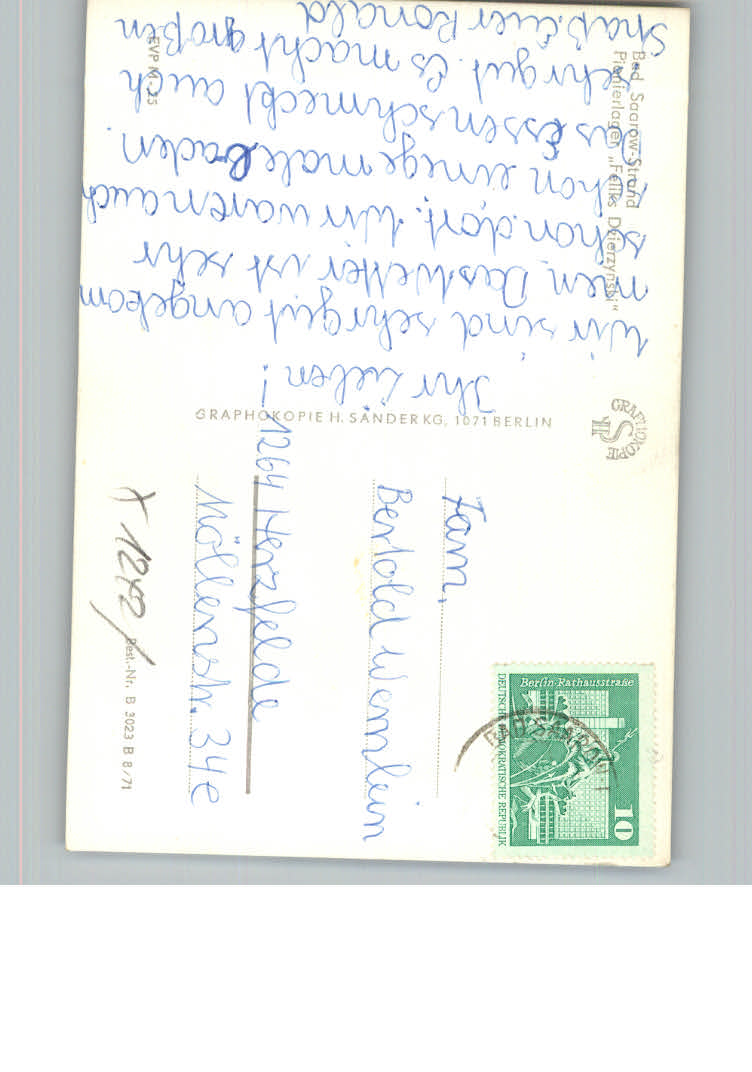 Bad Saarow-Strand
Pionierlager „Feliks Dzierzynski“
Ihr Lieben!
Wir sind sehr gut angekom
men. Das Wetter ist sehr
schon dort. Wir waren auch
schon einege male baden.
Das Essen schmeckt auch
sehr gut. Es macht großen
Spaß. Euer Ronald
EVP M -,25
GRAPHOKOPIE H. SANDER KG, 1071 BERLIN
GRAPHOKOPIE
HS
Berlin-Rathausstraße
10
DEUTSCHE DEMOKRATISCHE REPUBLIK
BAD SAAROW
Fam.
Bertold Wernlein
1264 Herzfelde
Möllenstr. 34e
X 1242/
Best.-Nr. B 3023 B 8/71